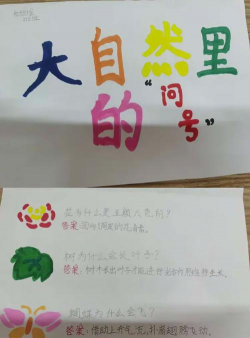 大自然里
的“问号”
花为什么是五颜六色的？
答案：
树为什么会长叶子？
答案：树木长出叶子才能进行光合作用
蝴蝶为什么会飞？
答案：借助上升气流，扑扇翅膀飞动。